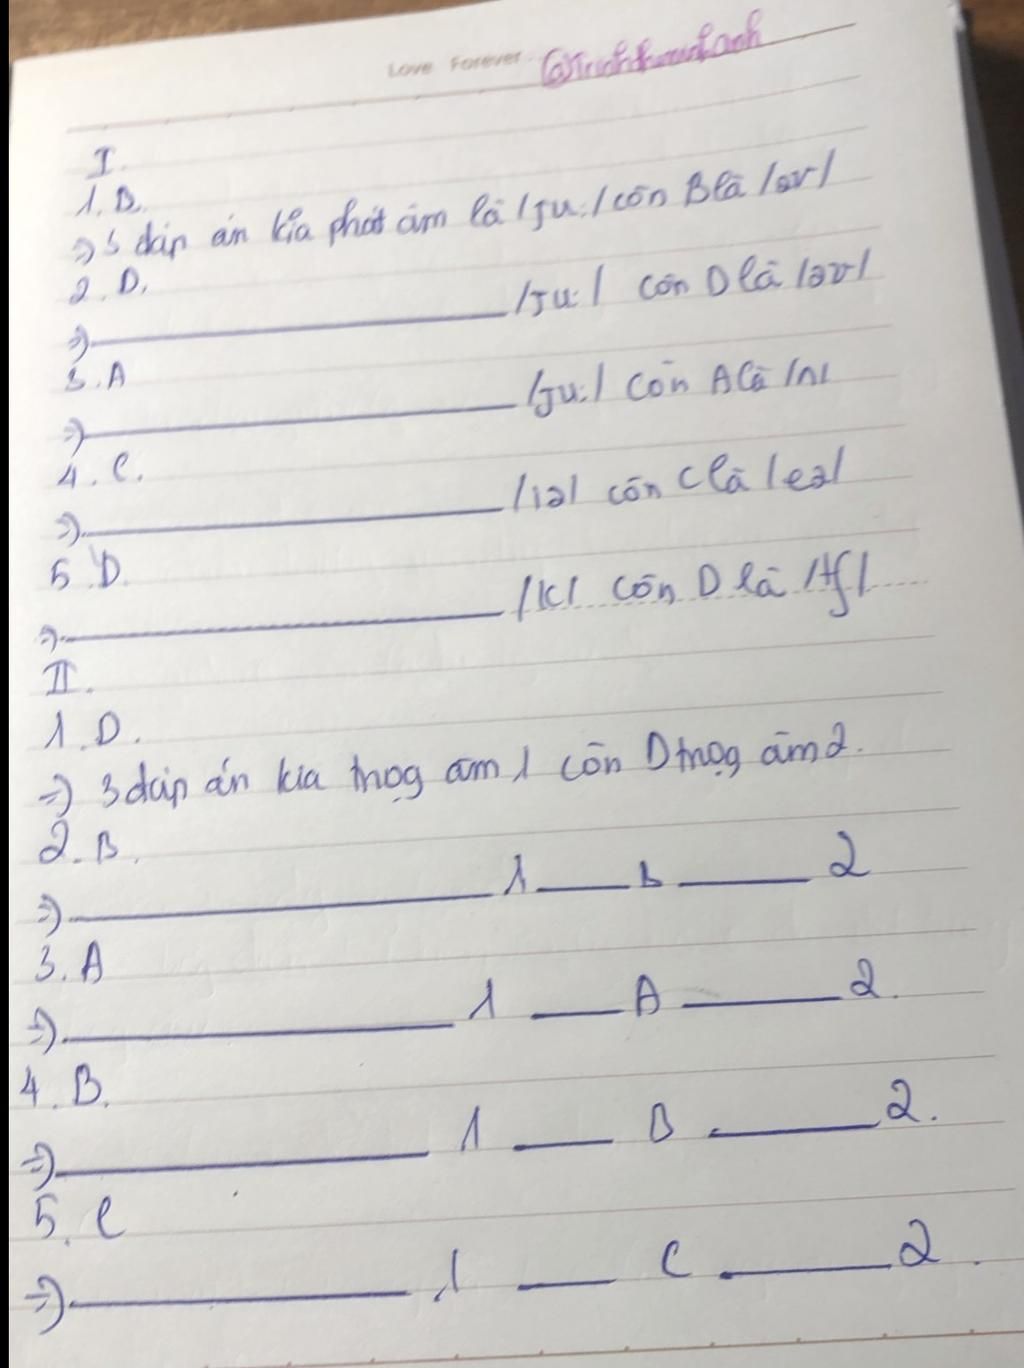 Love Forever @Trinhthuminhanh
I.
1. B.
=> 3 đáp án kia phát âm là /ju:/ còn B là /əʊ/
2. D.
=> ———— /ju:/ còn D là /əʊ/
3. A
=> ———— /ju:/ còn A là /ʌ/
4. C.
=> ———— /iə/ còn C là /eə/
5. D.
=> ———— /k/ còn D là /tʃ/
II.
1. D.
=> 3 đáp án kia trọg âm 1 còn D trọg âm 2.
2. B.
=> ———— 1 —— B —— 2
3. A
=> ———— 1 —— A —— 2.
4. B.
=> ———— 1 —— B —— 2.
5. C
=> ———— 1 —— C —— 2.